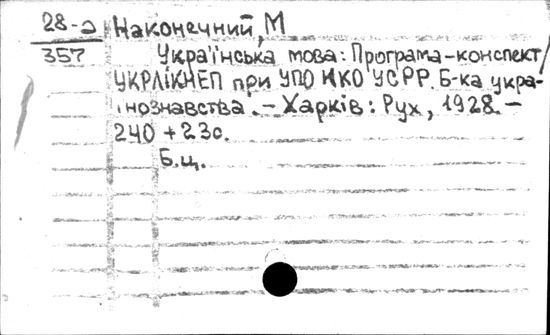 28-э Наконечний, М
357
Українська мова: Програма-конспект/
УКРЛІКНЕП при УПО НКО УСРР. Б-ка укра-
їнознавства. - Харків: Рух, 1928. -
240 + 23с.
Б.ц.